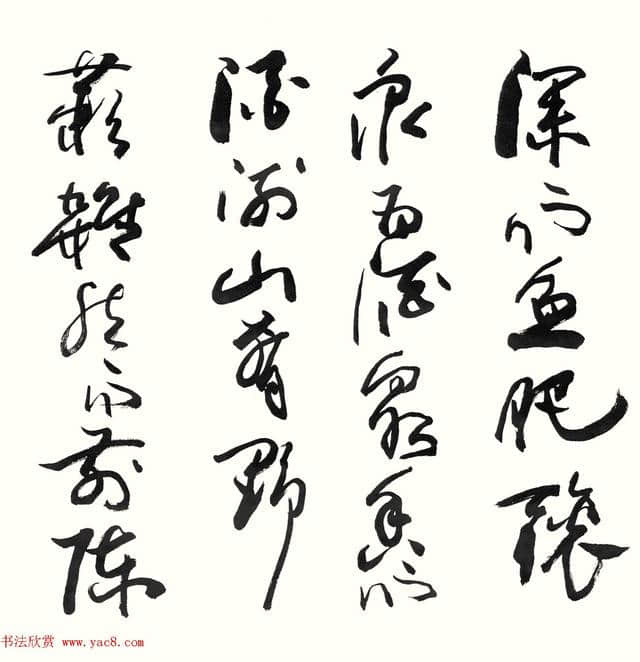 深而鱼肥釀
泉为酒泉香而
酒洌山肴野
蔌雜然而前陈
书法欣赏 www.yac8.com